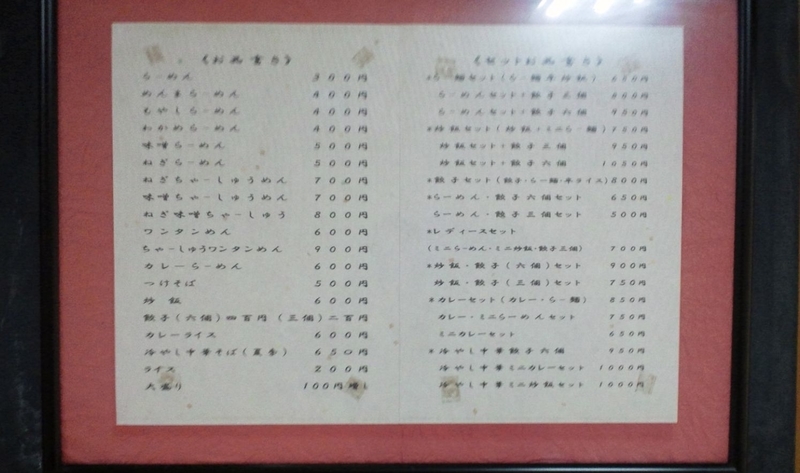 《お品書き》
らーめん 300円
めんまらーめん 400円
もやしらーめん 400円
わかめらーめん 400円
味噌らーめん 500円
ねぎらーめん 500円
ねぎちゃーしゅうめん 700円
味噌ちゃーしゅうめん 700円
ねぎ味噌ちゃーしゅう 800円
ワンタンめん 600円
ちゃーしゅうワンタンめん 900円
カレーらーめん 600円
つけそば 500円
炒飯 600円
餃子(六個)四百円 (三個)二百円
カレーライス 600円
冷やし中華そば(夏季) 650円
ライス 200円
大盛り 100円増し
《セットお品書き》
らー麺セット(らー麺半炒飯)
らーめんセット・餃子三個
らーめんセット・餃子六個 950円
炒飯セット(炒飯・ミニらー麺)
炒飯セット・餃子三個 950円
炒飯セット・餃子六個 1050円
餃子セット(餃子・らー麺・半ライス) 800円
らーめん・餃子六個セット 650円
らーめん・餃子三個セット 500円
レディースセット
(ミニらーめん・ミニ炒飯・餃子三個) 700円
炒飯・餃子(六個)セット 900円
炒飯・餃子(三個)セット 750円
カレーセット(カレー・らー麺) 850円
カレー・ミニらーめんセット 750円
ミニカレーセット 650円
冷やし中華餃子六個 950円
冷やし中華ミニカレーセット 1000円
冷やし中華ミニ炒飯セット 1000円